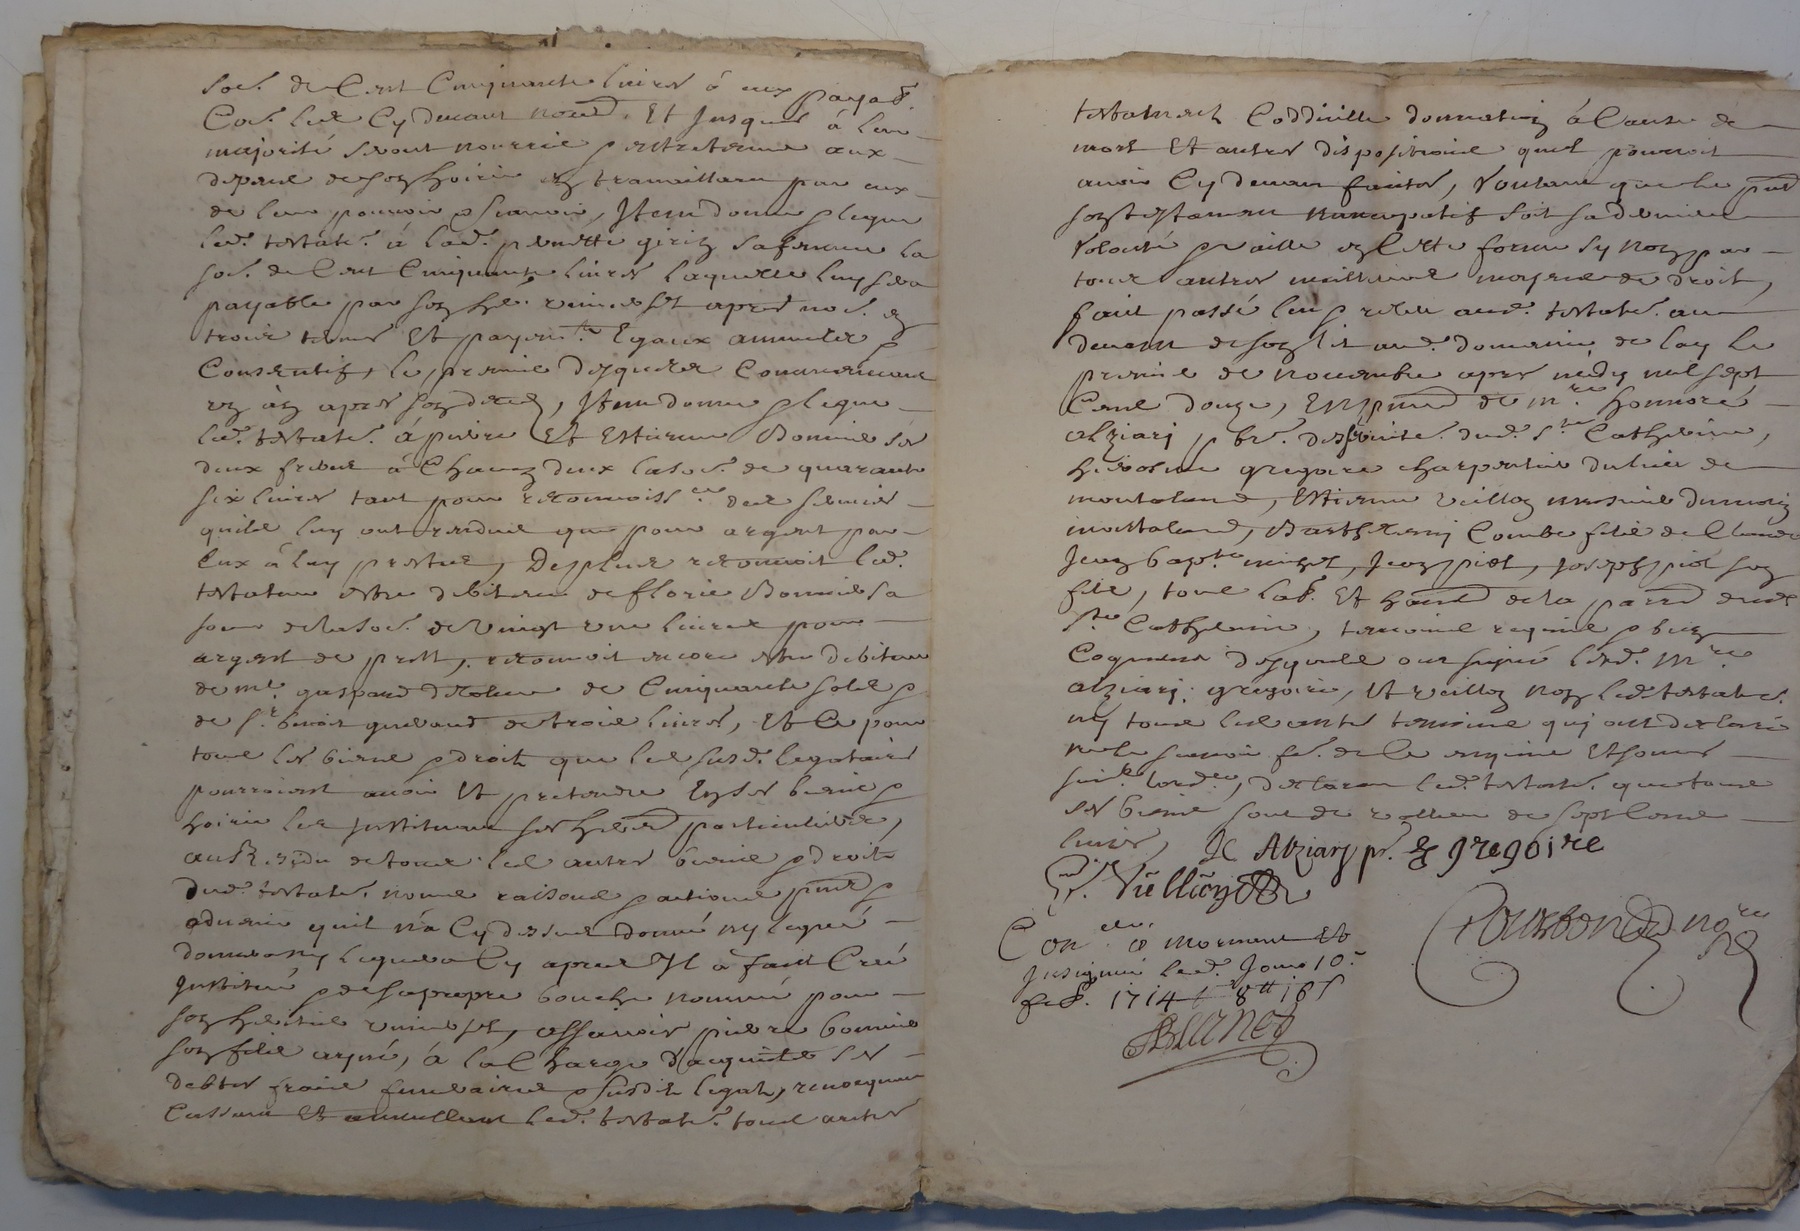 som. de Cent Cinquante livres à eux payab.
Co. les Cy devant nomd. Et jusques à leur
majorité seront nourris & entretenus aux
depens de son hoirie en travaillant par eux
de leur pouvoir & scavoir, Item donne & legue
led. testatr. à lad. pernette girin sa femme la
som. de Cent Cinquante livres laquelle luy sera
payable par son her. universel apres no. en
trois termes Et payemts. Egaux annuels &
Consecutifs, le premier desquels Commencant
un an apres son deces, Item donne & legue
led. testatr. à pierre Et Estienne Bonnier ses
deux freres à Chacun deux la som. de quarante
six livres tant pour reconnoissce. des services
quils luy ont rendus que pour argent par
Eux à luy prestes, De plus reconnoit led.
testateur estre debiteur de florie Bonnier sa
soeur de la som. de vingt une livres pour
argent de prest, reconnoit encore estre debiteur
de mr. gaspard de Cinquante sols &
de sr. benoit gueraud de trois livres, Et Ce pour
tous les biens & droits que les susd. legataires
pourroient avoir Et pretendre En ses biens &
hoirie les Instituant ses herers particuliers,
au Residu de tous les autres biens & droits
dud. testatr. noms raisons & actions pnts &
advenir quil n'a Cy dessus donné ny legué
donnera ny leguera Cy apres Il a fait Créé
Institué & de sa propre bouche nommé pour
son heritier universel, assavoir pierre bonnier
son fils ayné, à la Charge d'acquitter ses
debtes frais funeraires & susdits legats, revoquant
Cassant Et annullant led. testatr. tous autres
testaments Coddicille donnation à Cause de
mort Et autres dispositions quil pourroit
avoir Cy devant faites, voulant que le pnt
son testament nuncupatif soit sa derniere
volonté & vaille en Cette forme sy non par
tous autres meilleurs moyens de droit,
fait passé leu & releu aud. testatr. au
devant de son lit aud. domeine de lay le
premier de novembre apres midy mil sept
Cent douze, En pnce de mre. honnoré
alziari pbr. desservitr. dud. ste Catherine,
hierosme gregoire charpentier du lieu de
montaland, Estienne veillon du mesme
montaland, Barthelemy Combe fils de Claude
Jean bapte. mizet, Jean piot, Joseph piot son
fils, tous lab. Et habitts de la parr. dud.
Ste Catherine, temoins requis & bien
Cognus desquels ont signé lesd. Mre.
alziari, gregoire, Et veillon non led. testatr.
ny tous les autres temoins qui ont declaré
ne le scavoir fe. de Ce enquis Et sommés
suivt. lordce., declarant led. testatr. que tous
ses biens sont de valleur de sept Cents
livres, H Alziary pr. gregoire
Vüllion
Conlé. à mornant Et
Insignué led. Jour 10e.
feb. 1714 8tt 16s
Bernet
Bourbon nore